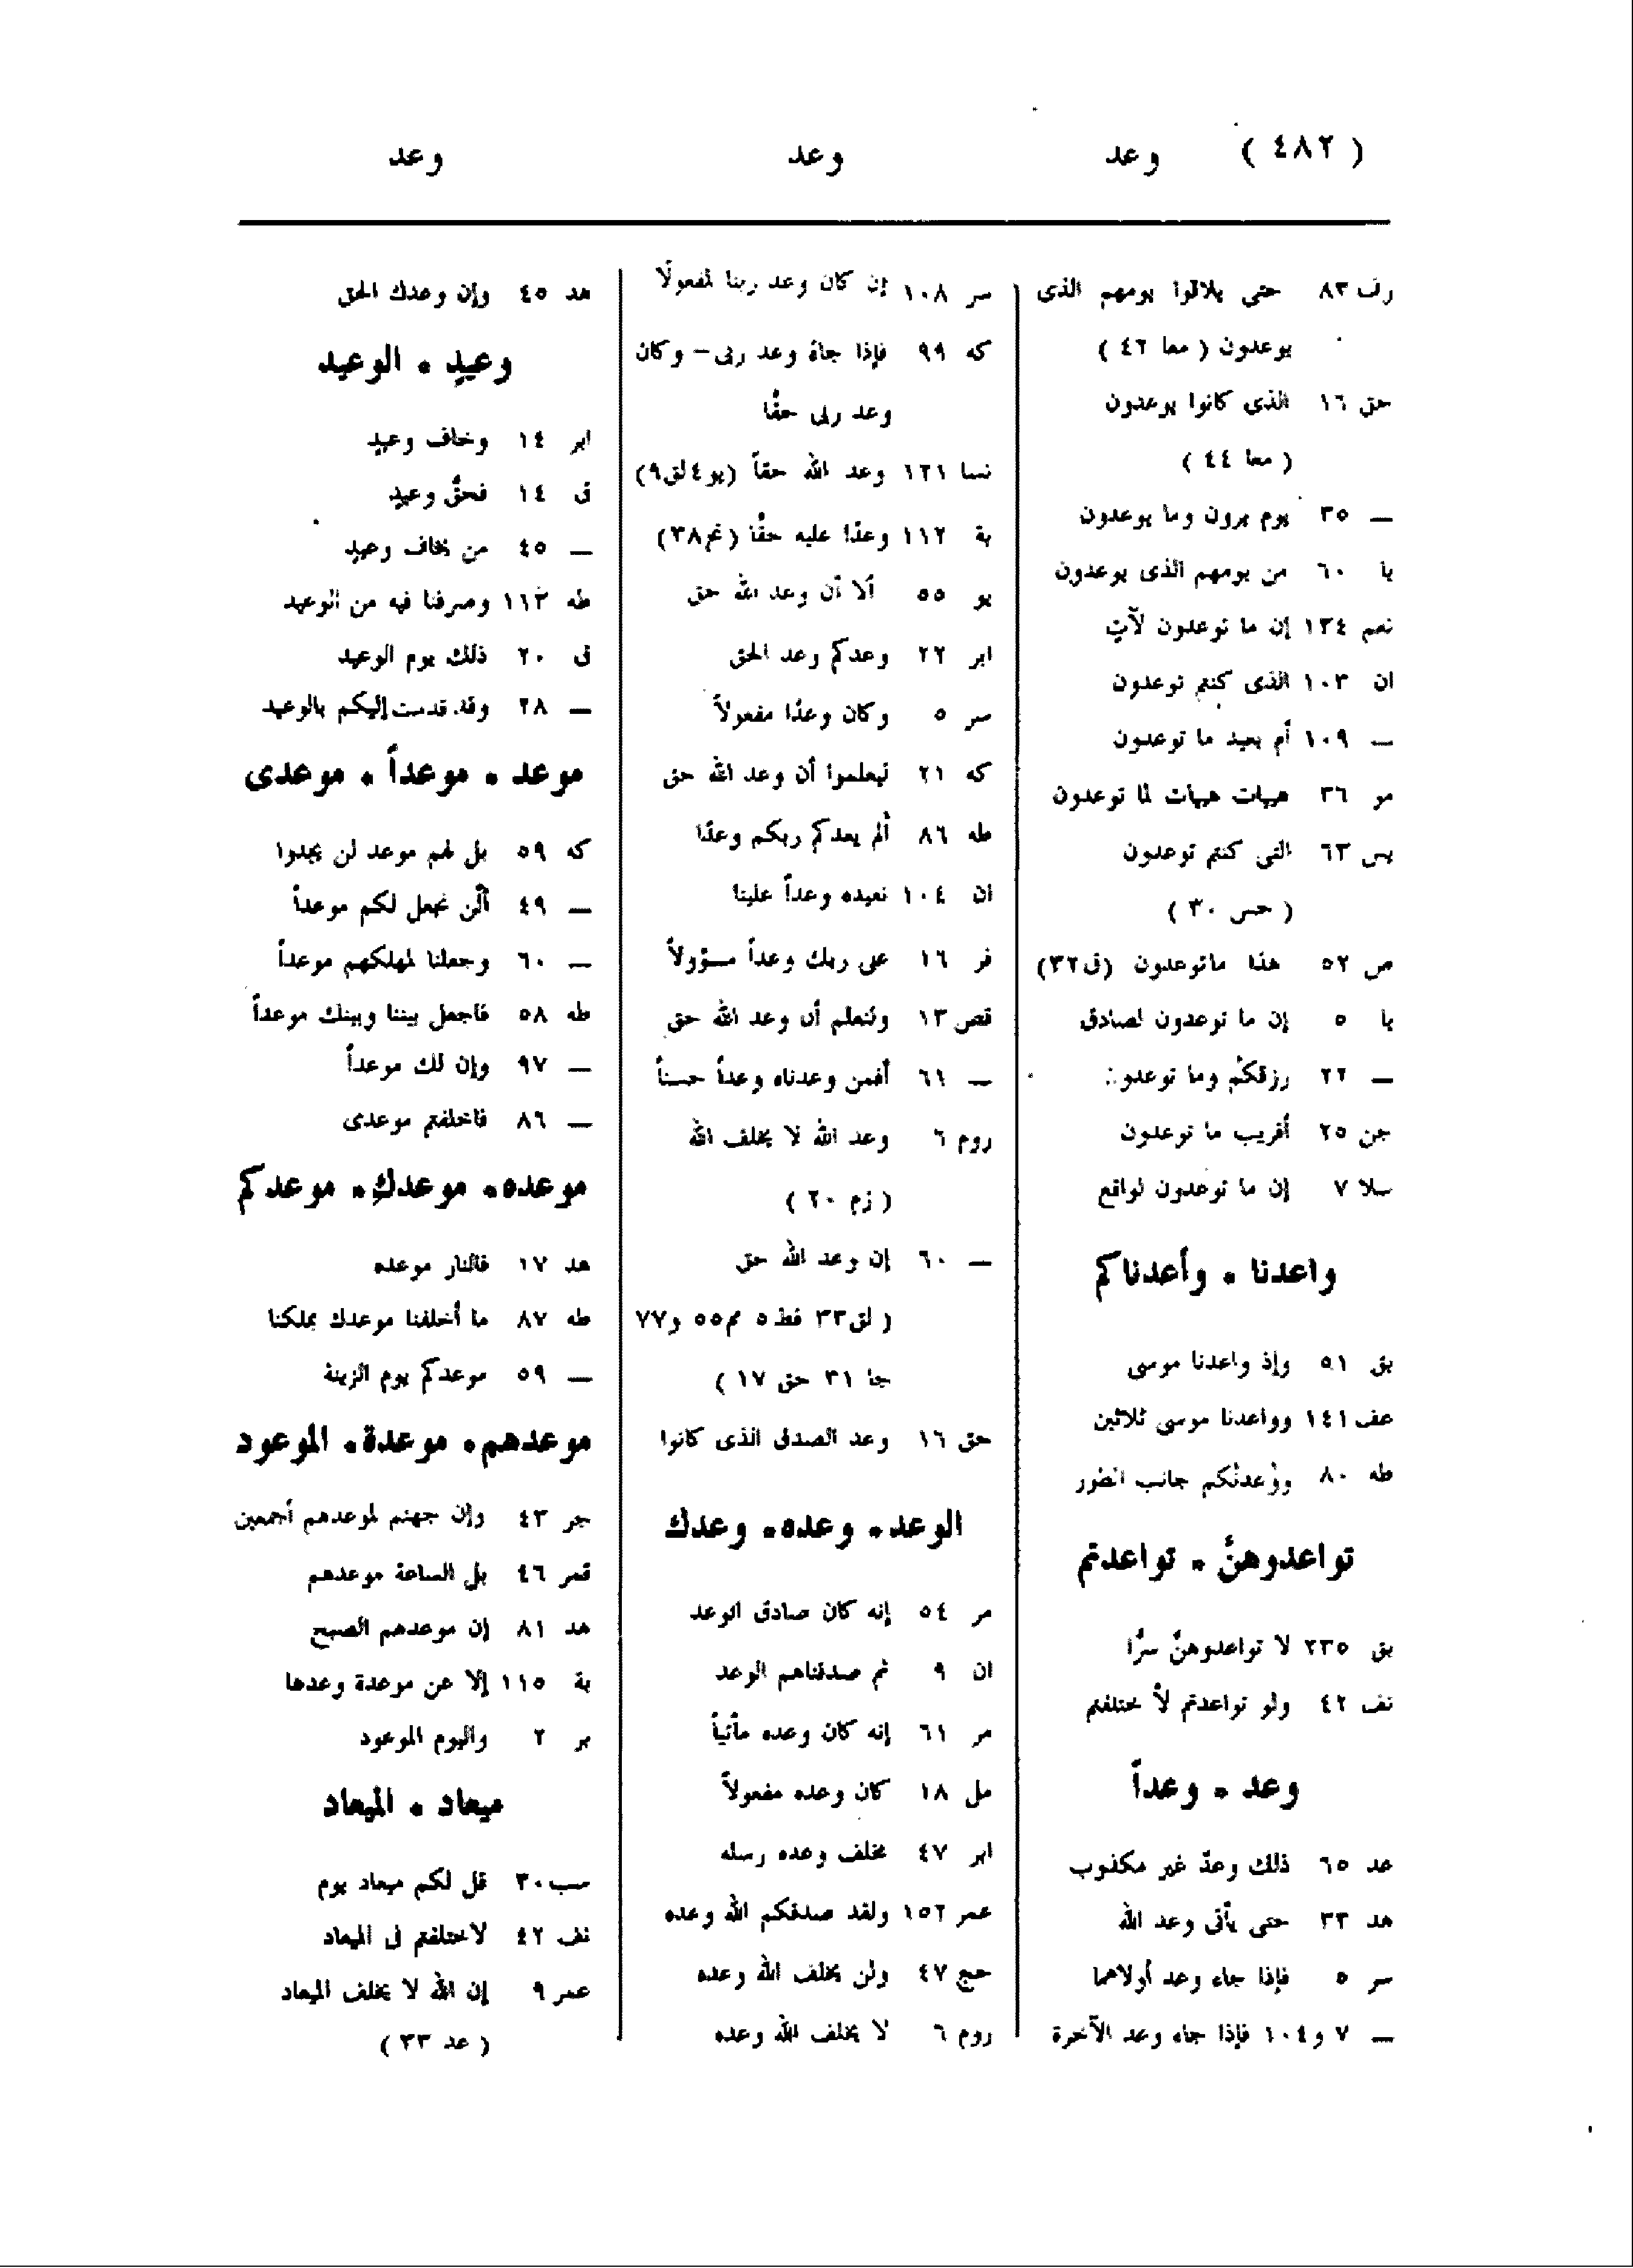 ( ٤٨٢ ) وعد وعد وعد
رف ٨٣ حتى يلاقوا يومهم الذى
يوعدون ( معا ٤٢ )
حق ١٦ الذى كانوا يوعدون
( معا ٤٤ )
— ٣٥ يوم يرون وما يوعدون
يا ٦٠ من يومهم الذى يوعدون
نعم ١٣٤ إن ما توعدون لآتٍ
ان ١٠٣ الذى كنتم توعدون
— ١٠٩ أم بعيد ما توعدون
مو ٣٦ هيهات هيهات لما توعدون
يس ٦٣ التى كنتم توعدون
( حس ٣٠ )
ص ٥٢ هذا ماتوعدون (ق٣٢)
يا ٥ إن ما توعدون لصادق
— ٢٢ رزقكم وما توعدون
جن ٢٥ أقريب ما توعدون
سلا ٧ إن ما توعدون لواقع
واعدنا . وأعدناكم
بق ٥١ وإذ واعدنا موسى
عف ١٤١ وواعدنا موسى ثلاثين
طه ٨٠ ووٰعدنٰكم جانب الطور
تواعدوهنَّ . تواعدتم
بق ٢٣٥ لا تواعدوهنَّ سرًّا
نف ٤٢ ولو تواعدتم لأختلفتم
وعد . وعداً
عد ٦٥ ذلك وعدٌ غير مكذوب
هد ٣٣ حتى يأتى وعد الله
سر ٥ فإذا جاء وعد أولاهما
— ٧ و١٠٤ فإذا جاء وعد الآخرة
سر ١٠٨ إن كان وعد ربنا لمفعولًا
كه ٩٩ فإذا جاء وعد ربى – وكان
وعد ربى حقًّا
نسا ١٢١ وعد الله حقاً (يو٤لق٩)
بة ١١٢ وعدًا عليه حقًّا (نم٣٨)
يو ٥٥ ألا أن وعد الله حق
ابر ٢٢ وعدكم وعد الحق
سر ٥ وكان وعدًا مفعولاً
كه ٢١ ليعلموا أن وعد الله حق
طه ٨٦ ألم يعدكم ربكم وعدًا
ان ١٠٤ نعيده وعداً علينا
فر ١٦ على ربك وعداً مسؤولاً
قص ١٣ ولتعلم أن وعد الله حق
— ٦١ أفمن وعدناه وعداً حسناً
روم ٦ وعد الله لا يخلف الله
( زم ٢٠ )
— ٦٠ إن وعد الله حق
( لق٣٣ فط٥ مم٥٥ و٧٧
جا ٣١ حق ١٧ )
حق ١٦ وعد الصدق الذى كانوا
الوعد . وعده . وعدك
مر ٥٤ إنه كان صادق الوعد
ان ٩ ثم صدقناهم الوعد
مر ٦١ إنه كان وعده مأتياً
مل ١٨ كان وعده مفعولاً
ابر ٤٧ مخلف وعده رسله
عمر ١٥٢ ولقد صدقكم الله وعده
حج ٤٧ ولن يخلف الله وعده
روم ٦ لا يخلف الله وعده
هد ٤٥ وإن وعدك الحق
وعيدِ . الوعيد
ابر ١٤ وخاف وعيدِ
ق ١٤ فحقَّ وعيدِ
— ٤٥ من يخاف وعيدِ
طه ١١٣ وصرفنا فيه من الوعيد
ق ٢٠ ذلك يوم الوعيد
— ٢٨ وقد قدمت إليكم بالوعيد
موعد . موعداً . موعدى
كه ٥٩ بل لهم موعد لن يجدوا
— ٤٩ ألّن نجعل لكم موعداً
— ٦٠ وجعلنا لمهلكهم موعداً
طه ٥٨ فاجعل بيننا وبينك موعداً
— ٩٧ وإن لك موعداً
— ٨٦ فاخلفتم موعدى
موعده . موعدكِ . موعدكم
هد ١٧ فالنار موعده
طه ٨٧ ما أخلفنا موعدك بملكنا
— ٥٩ موعدكم يوم الزينة
موعدهم . موعدة . الموعود
جر ٤٣ وإن جهنم لموعدهم أجمعين
قمر ٤٦ بل الساعة موعدهم
هد ٨١ إن موعدهم الصبح
بة ١١٥ إلا عن موعدة وعدها
بر ٢ واليوم الموعود
ميعاد . الميعاد
سب ٣٠ قل لكم ميعاد يوم
نف ٤٢ لاختلفتم فى الميعاد
عمر ٩ إن الله لا يخلف الميعاد
( عد ٣٣ )